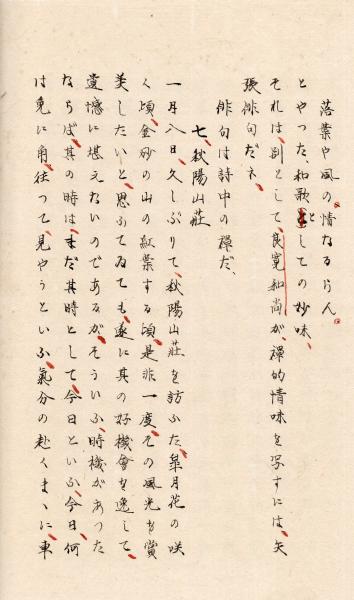 落葉や風の情なるらん、
とやつた、和歌としての妙味、
それは、別として、良寛和尚が、禅的情味を写すには、矢
張俳句だネ、
俳句は詩中の禅だ、
七、秋陽山荘
一月八日、久しぶりで、秋陽山荘を訪ふた、皐月花の咲
く頃、金砂の山の紅葉する頃、是非一度、その風光を賞
美したいと、思ふてゐても、遂に其の好機會を逸して、
遺憾に堪えないのであるが、そういふ、時機があつた
ならば、其の時は、まだ其時として、今日といふ、今日、何
は兎に角、往つて、見やうといふ、氣分の赴くまゝに、車